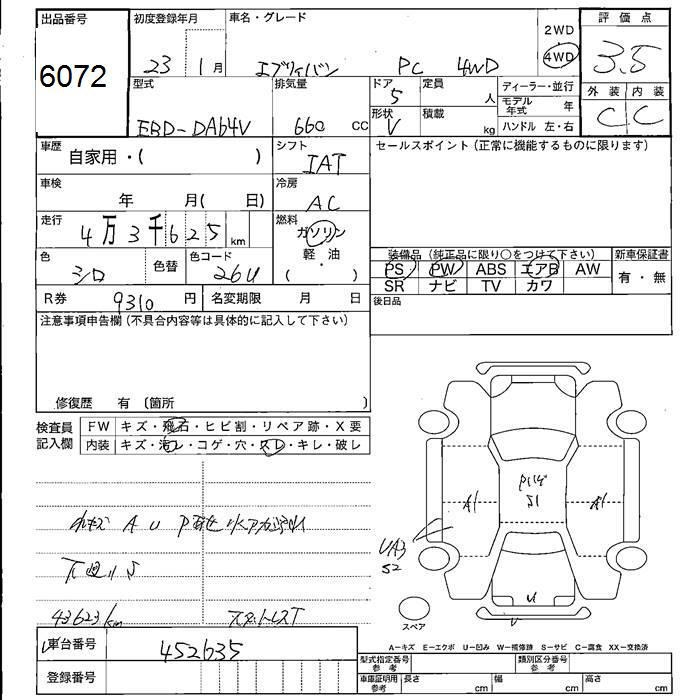 出品番号 初度登録年月 車名・グレード 2WD 評価点
6072 23 1月 エブリィバン PC 4WD 4WD 3.5
型式 排気量 ドア 定員 ディーラー・並行 外装 内装
5 人 モデル年式 年 C C
EBD-DA64V 660 cc 形状 V 積載 kg ハンドル 左・右
車歴 自家用・( ) シフト IAT セールスポイント(正常に機能するものに限ります)
車検 年 月( 日) 冷房 AC
走行 4万3千625 km 燃料 ガソリン 軽・油 ( )
装備品(純正品に限り○をつけて下さい) 新車保証書
色 シロ 色替 色コード 26U PS PW ABS エアB AW 有・無
SR ナビ TV カワ
R券 9310円 名変期限 月 日 後日品
注意事項申告欄(不具合内容等は具体的に記入して下さい)
修復歴 有 〔箇所 〕
検査員記入欄 FW キズ・飛石・ヒビ割・リペア跡・X要
内装 キズ・汚レ・コゲ・穴・スレ・キレ・破レ
A U P
下廻りS
43623km
A1 S1 A1
UA3
S2
U
U
スペア
車台番号 452635
A=キズ E=エクボ U=凹み W=補修跡 S=サビ C=腐食 XX=交換済
登録番号 型式指定番号 参考 類別区分番号 参考
車庫証明用 参考 長さ cm 幅 cm 高さ cm